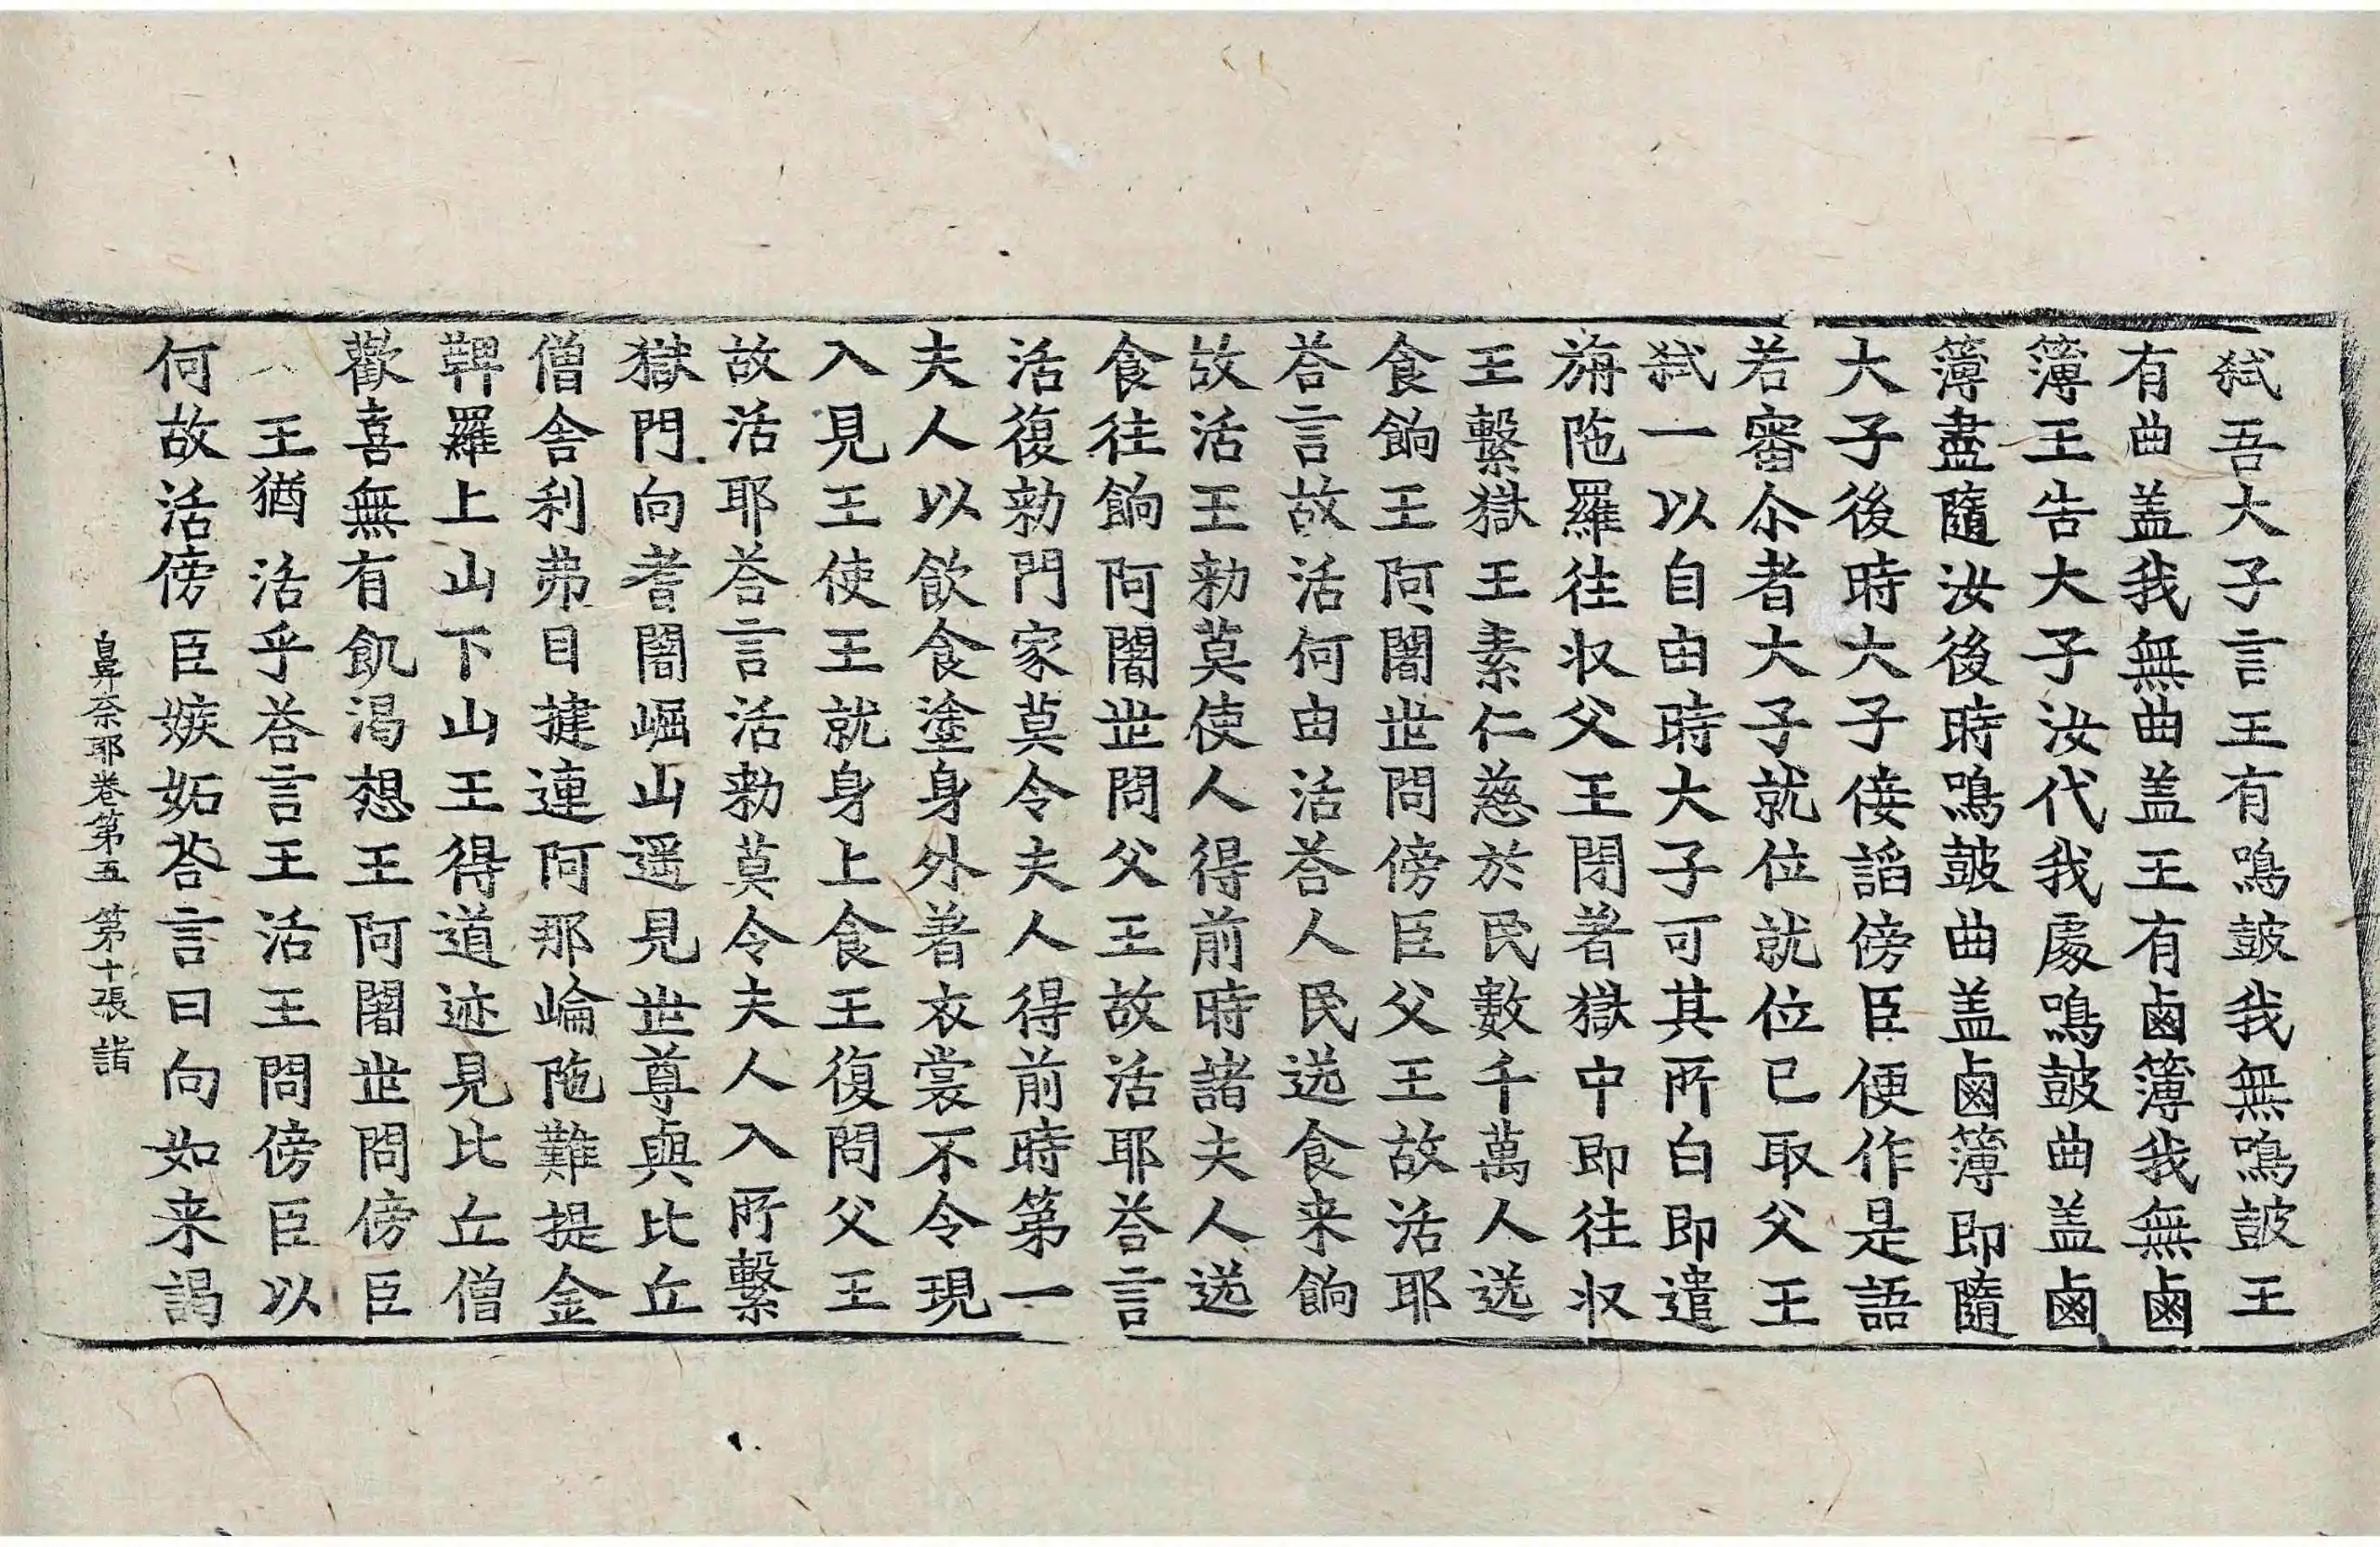 弑吾大子言王有鳴鼓我無鳴鼓王
有曲盖我無曲盖王有鹵簿我無鹵
簿王告大子汝代我處鳴鼓曲盖鹵
簿盡隨汝後時鳴鼓曲盖鹵簿即隨
大子後時大子倿謟傍臣便作是語
若審尒者大子就位就位已取父王
弑一以自由時大子可其所白即遣
旃陁羅往収父王閉著獄中即往収
王繫獄王素仁慈於民數千萬人送
食餉王阿闍世問傍臣父王故活耶
荅言故活何由活荅人民送食来餉
故活王勑莫使人得前時諸夫人送
食往餉阿闍世問父王故活耶荅言
活復勑門家莫令夫人得前時第一
夫人以飲食塗身外著衣裳不令現
入見王使王就身上食王復問父王
故活耶荅言活勑莫令夫人入所繫
獄門向耆闍崛山遥見世尊與比丘
僧舍利弗目揵連阿那崘陁難提金
鞞羅上山下山王得道迹見比丘僧
歡喜無有飢渴想王阿闍世問傍臣
王猶活乎荅言王活王問傍臣以
何故活傍臣嫉妬荅言曰向如来謁
鼻奈耶卷第五 第十張 諧